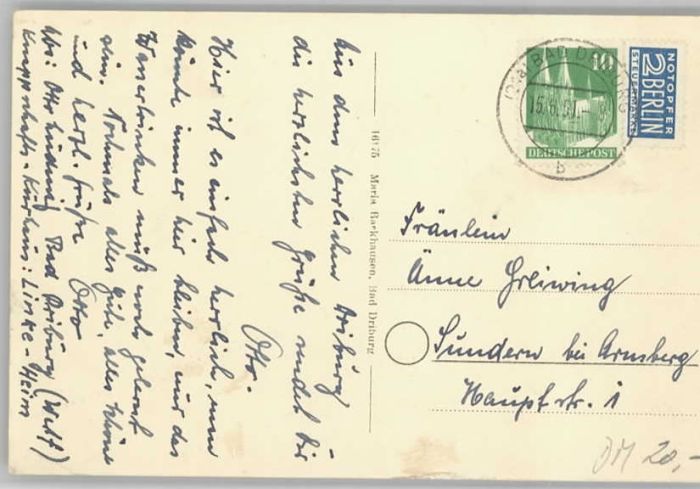 Aus dem herrlichen Driburg
die herzlichsten Grüße sendet Dir
Otto.
Hier ist es einfach herrlich, man
könnte immer hier bleiben, nur das
Wassertrinken muß noch gelernt
sein. Nochmals alles Gute, alles Schöne
und herzl. Grüße Otto
Abs: Otto Bad Driburg (Westf)
Knappschafts-Kurheim: Linke-Heim
16175 Maria Backhausen, Bad Driburg
(21a) BAD DRIBURG
15.6.50.-
b
10
DEUTSCHE POST
NOTOPFER
2 BERLIN
STEUERMARKE
Fräulein
Änne Greiwing
Sundern bei Arnsberg
Hauptstr. 1
DM 20,-